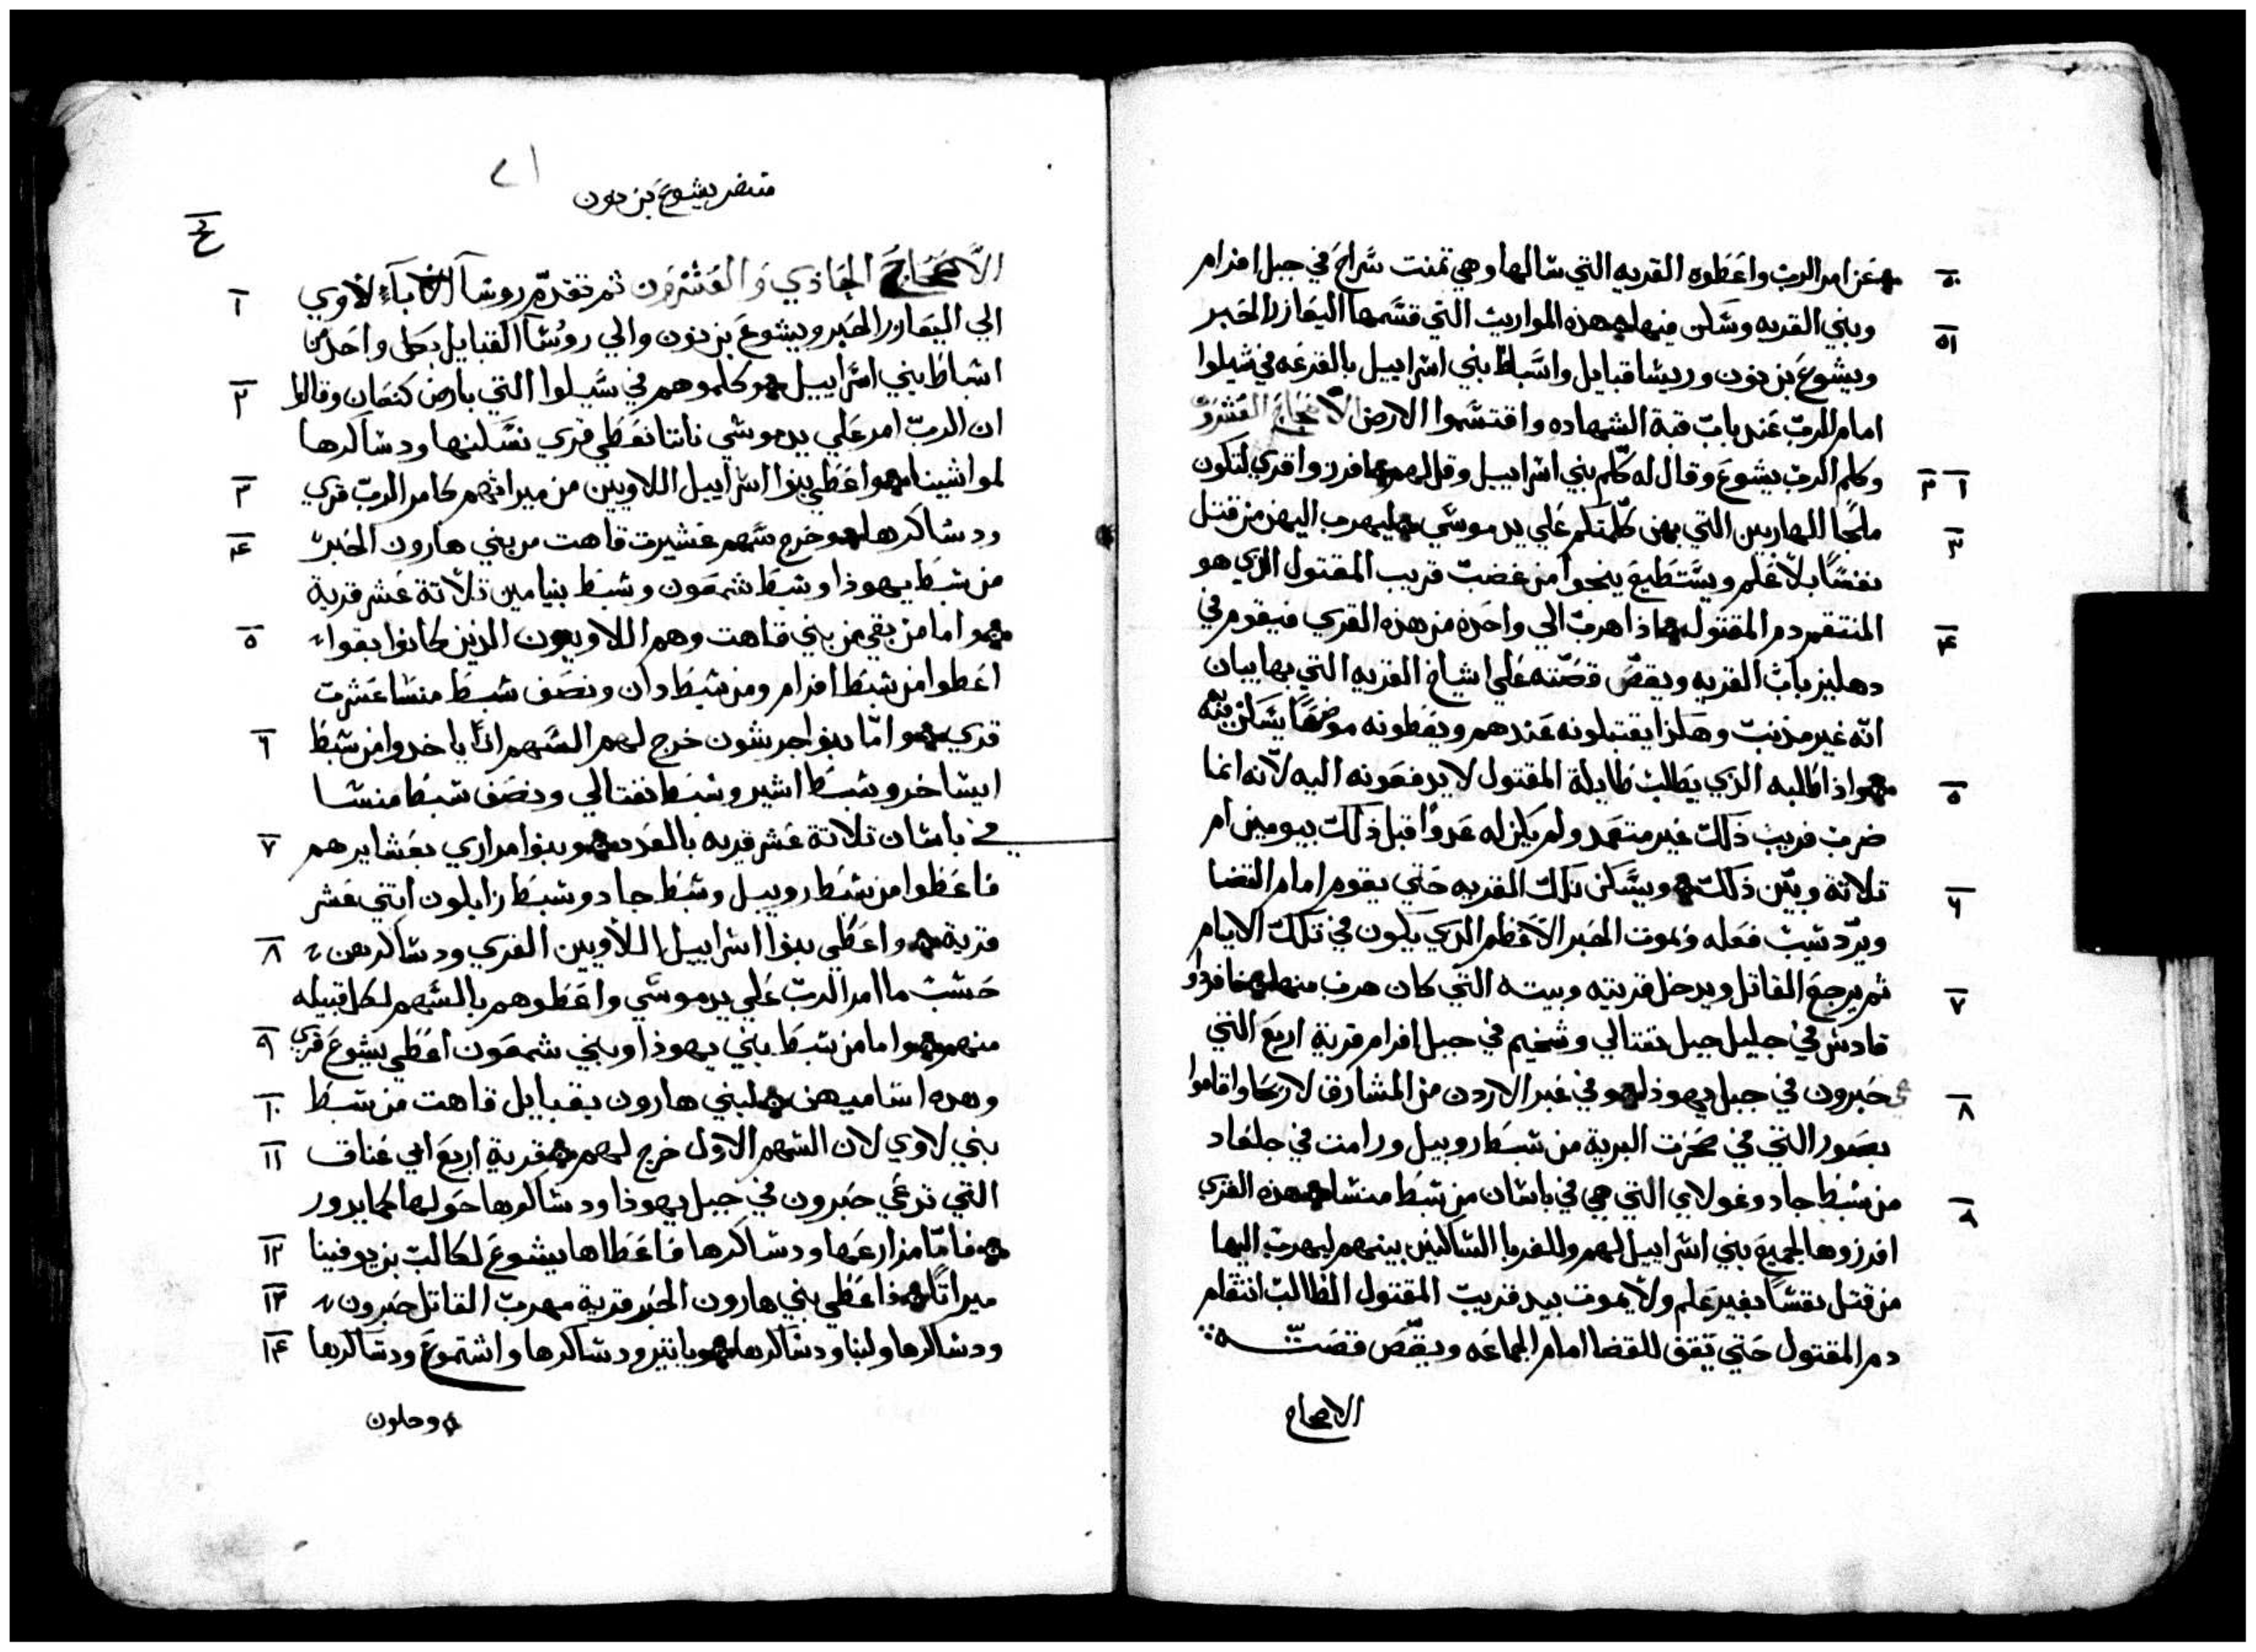 ٥٠ عن امر الرب واعطوه القريه التي سالها وهي تمنت سراح في جبل افرام
٥١ وبني القريه وسكن فيها هذه المواريث التي قسمها اليعازر الحبر
ويشوع بن نون وريسا قبايل واسباط بني اسراييل بالقرعه في شيلوا
امام الرب عند باب قبة الشهاده واقتسموا الارض الاصحاح العشرون
١ ٢ وكلم الرب يشوع وقال له كلم بني اسراييل وقل لهم افرزوا قري لتكون
٣ ملجا للهاربين التي بهن كلمتكم علي يد موسي ليهرب اليهن من قتل
نفسًا بلا علم ويستطيع ينجوا من غضب قريب المقتول الذي هو
٤ المنتقم دم المقتول اذا هرب الي واحده من هذه القري فيقوم في
دهليز باب القريه ويقص قصّته علي اشياخ القريه التي بها بيان
انه غير مذنب وهكذا يقتبلونه عندهم ويعطونه موضعًا يسكن فيه
٥ واذا طلبه الذي يطلب طايلة المقتول لا يدفعونه اليه لانه انما
ضرب قريب ذلك غير متعمد ولم يكن له عدوًا قبل ذلك بيومين ام
٦ تلاتة وبيّن ذلك ويسكن تلك القريه حتي يقوم امام القضا
ويرد سبب فعله ويموت الحبر الاعظم الذي يكون في تلك الايام
٧ ثم يرجع القاتل ويدخل قريته وبيته التي كان هرب منها فافرزوا
قادس في جليل جبل نفتالي وشخيم في جبل افرام قرية اربع التي
٨ حبرون في جبل يهوذا وفي عبر الاردن من المشارق لاريحا واقاموا
بصور التي في صحرت البرية من شبط روبيل ورامت في جلعاد
٩ من شبط جاد وغولاي التي هي في باشان من شبط منشا هذه القري
افرزوها لجميع بني اسراييل لهم وللغربا الساكنين بينهم ليهرب اليها
من قتل نفسًا بغير علم ولا يموت بيد قريب المقتول الطالب انتقام
دم المقتول حتي يقف للقضا امام الجماعه ويقص قصته
الاصحاح
يشوع بن نون
الاصحاح الحادي والعشرون ثم تقدم روسا اباء لاوي ١
الي اليعازر الحبر ويشوع بن نون والي روسا القبايل بكل واحد من
اسباط بني اسراييل وكلموهم في سيلوا التي بارض كنعان وقالوا ٢
ان الرب امر علي يد موسي ناننا نعطي قري نسكنها ودساكرها
لمواشينا واعطي بنوا اسراييل اللاويين من ميراثهم كامر الرب قري ٣
ودساكرها وخرج سهم عشيرت قاهت من بني هارون الحبر ٤
من شبط يهوذا وشبط شمعون وشبط بنيامين تلاتة عشر قرية
واما من بقي من بني قاهت وهم اللاويون الذين كانوا بقوا ٥
اعطوا من شبط افرام ومن شبط دان ونصف شبط منشا عشرت
قري واما بنوا جرشون خرج لهم السهم ان ياخدوا من شبط ٦
ايساخر وشبط اشير وشبط نفتالي ونصف شبط منشا
في باشان تلاتة عشر قريه بالعدد وبنوا مراري بعشايرهم ٧
فاعطوا من شبط روبيل وشبط جاد وشبط زابلون اتني عشر
قرية واعطي بنوا اسراييل اللاويين القري ودساكرهن ٨
حسب ما امر الرب علي يد موسي واعطوهم بالسهم لكل قبيله
منهم واما من شبط بني يهوذا وبني شمعون اعطي يشوع قري ٩
وهده اساميهن لبني هارون بقبايل قاهت من شبط ١٠
بني لاوي لان السهم الاول خرج لهم قرية اربع ابي عناق ١١
التي تدعي حبرون في جبل يهوذا ودساكرها حولها كما يدور
فامّا مزارعها ودساكرها فاعطاها يشوع لكالب بن يوفينا ١٢
ميراتًا فاعطي بني هارون الحبر قرية مهرب القاتل حبرون ١٣
ودساكرها ولبنا ودساكرها وياتير ودساكرها واشتموع ودساكرها ١٤
وحلون